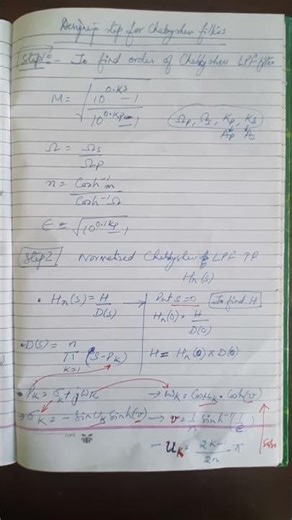 Design step for Chebyshev filters
Step 1:- To find order of Chebyshev LPF filter
M = √(10^0.1Ks - 1 / 10^0.1Kp - 1)
Ωp, Ωs, Kp, Ks
Ap As
Ω = Ωs / Ωp
n = Cosh⁻¹ m / Cosh⁻¹ Ω
ε = √(10^0.1Kp - 1)
Step 2 Normalized Chebyshev LPF TF
Hn(s)
• Hn(s) = H / D(s) → Put S=0 To find H
Hn(0) = H / D(0)
• D(s) = n π k=1 (S-Pk) H = Hn(0) x D(0)
• Pk = σk + jωk → ωk = Cos uk . Cosh(v)
→ σk = - Sin uk Sinh(v) → v = 1/n Sinh⁻¹(1/ε)
- uk = 2k-1 / 2n π